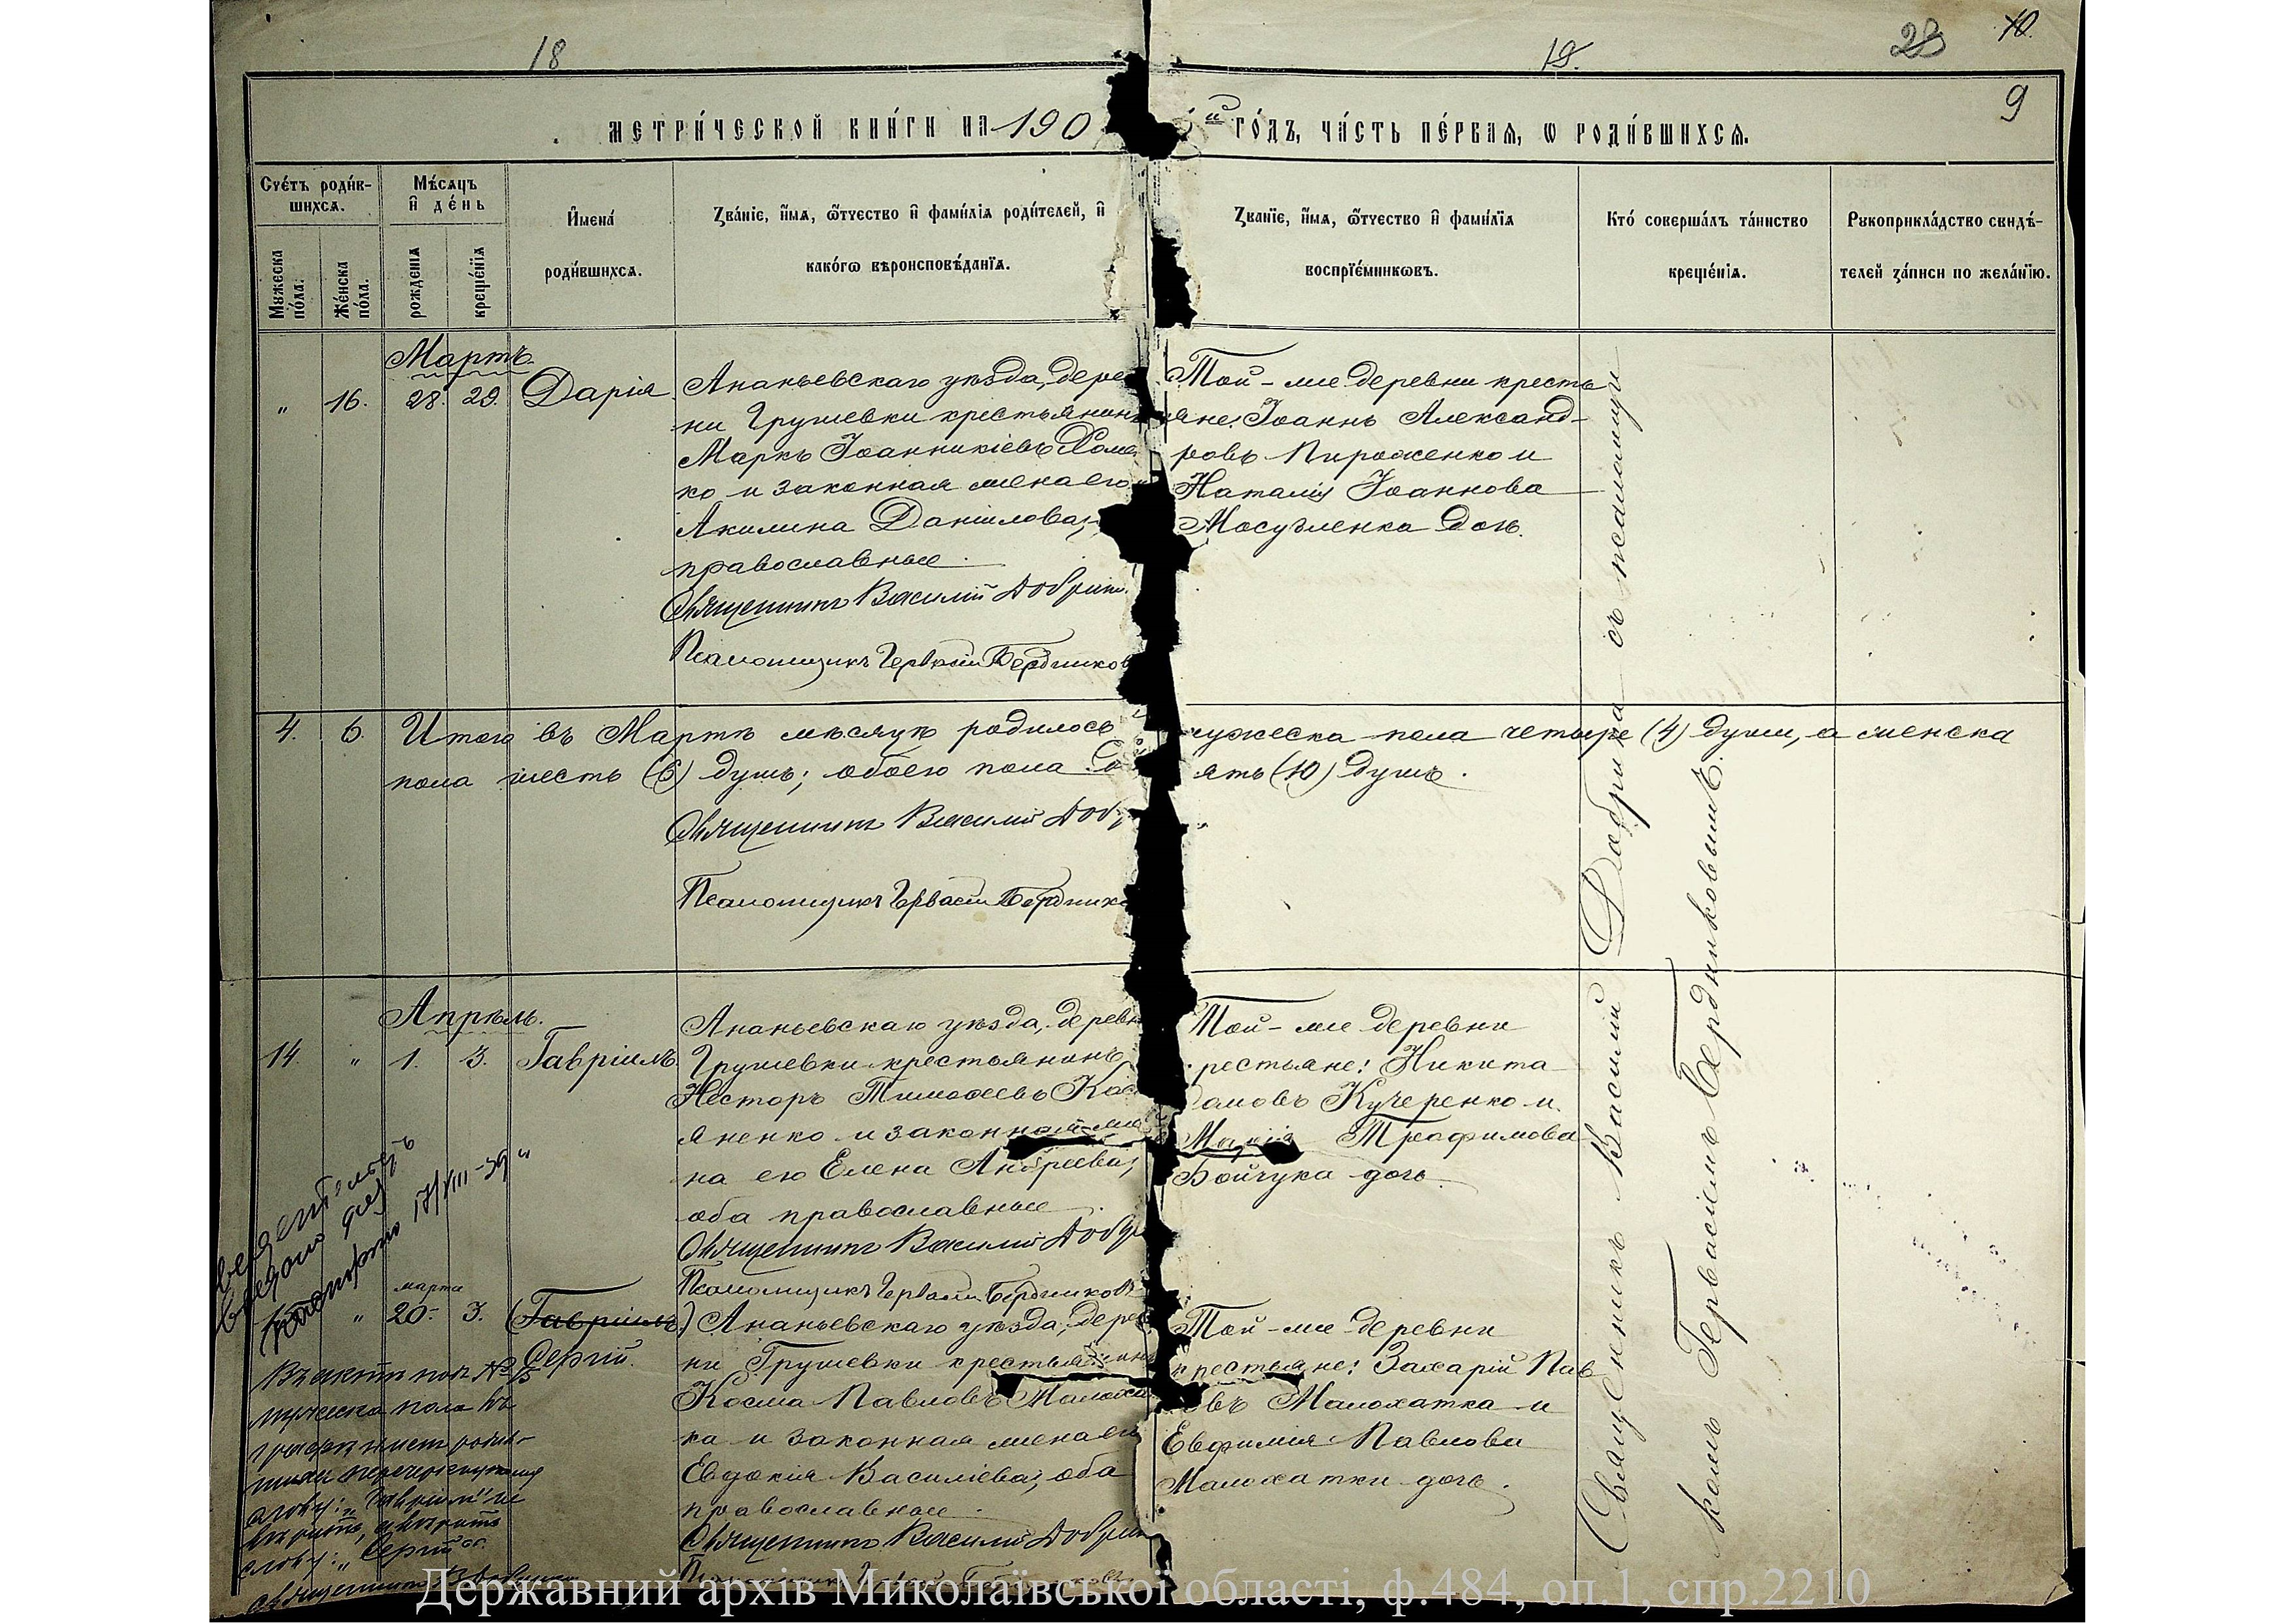 18
19.
28
10.
9
МЕТРИ́ЧЕСКОЙ КНИ́ГИ НА 190
й ГО́ДЪ, ЧА́СТЬ ПЕ́РВАЯ, Ѡ РОДИ́ВШИХСЯ.
Сче́тъ роди́в-
шихся.
Му́жеска по́ла.
Же́нска по́ла.
Мѣ́сяцъ
и҆ де́нь
рожденїѧ
креще́нїѧ
И҆мена́
роди́вшихся.
Зва́нїе, и҆́мѧ, ѻ҆́тчество и҆ фами́лїѧ роди́телей, и҆
како́гѡ вѣроисповѣ́данїѧ.
Зва́нїе, и҆́мѧ, ѻ҆́тчество и҆ фами́лїѧ
воспрїе́мникѡвъ.
Кто́ соверша́лъ та́инство
креще́нїѧ.
Рукоприкла́дство свидѣ́-
телей за́писи по жела́нїю.
Мартъ.
" 16. 28. 29. Дарія
Ананьевскаго уѣзда, дере
ни Грушевки крестьянинъ
Маркъ Іоанникіевъ Хоме
ко и законная жена его
Акилина Даніилова,
православные.
Священникъ Василій Добрик
Псаломщикъ Гервасій Бердников
Той-же деревни кресть
яне: Іоаннъ Александ-
ровъ Пироженко и
Наталія Іоаннова
дочь.
4. 6. Итого въ Мартѣ мѣсяцѣ родилось мужеска пола четыре (4) души, а женска
пола шесть (6) душъ; обоего пола десять (10) душъ.
Священникъ Василій Добр
Псаломщикъ Гервасій Бердников
Апрѣль.
14. " 1. 3. Гавріилъ.
Ананьевскаго уѣзда, деревн
Грушевки крестьянинъ
Несторъ Тимофеевъ Кас
яненко и законная же
на его Елена Андреева,
оба православные.
Священникъ Василій Добр
Псаломщикъ Гервасій Бердников
Той-же деревни
крестьяне: Никита
Кучеренко и
Марія Трофимова
Бойчука дочь.
17/VIII-39
марта
" 20. 3. (Гавріилъ)
Сергій.
Ананьевскаго уѣзда, дерев
ни Грушевки крестьянинъ
Косма Павловъ Малоха
ка и законная жена его
Евдокія Василіева, оба
православные.
Священникъ Василій Добрик
Той-же деревни
крестьяне: Захарій Пав
овъ Малохатка и
Евфимія Павлова
Малохатки дочь.
Въ актѣ подъ № 15
мужеска пола въ
графѣ
слову: "Гавріилъ" не
слову: "Сергій"
Священникъ Василій Дабрика съ псаломщи
комъ Гервасіемъ Бердниковымъ.
Державний архів Миколаївської області, ф.484, оп.1, спр.2210